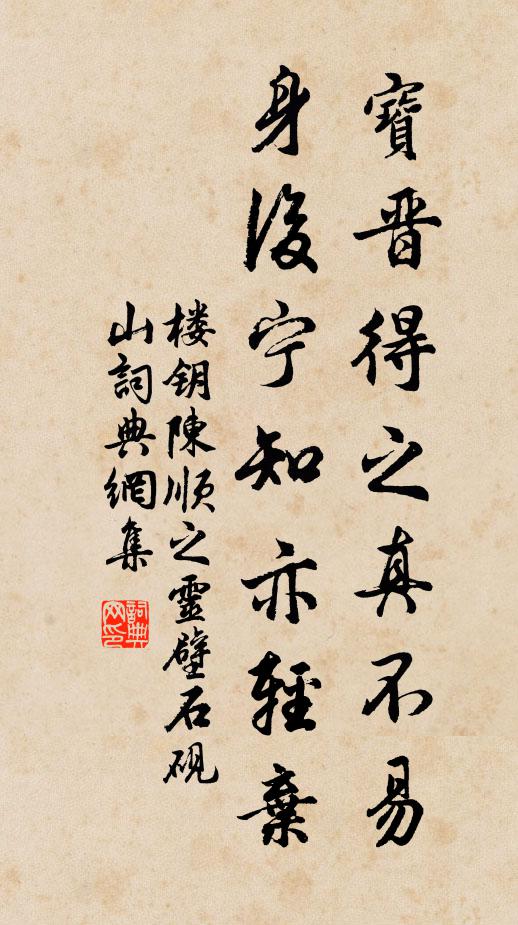 寶晋得之真不易
身後宁知亦輕棄
楼钥陳順之靈壁石硯
山詞典網集
詞典网印